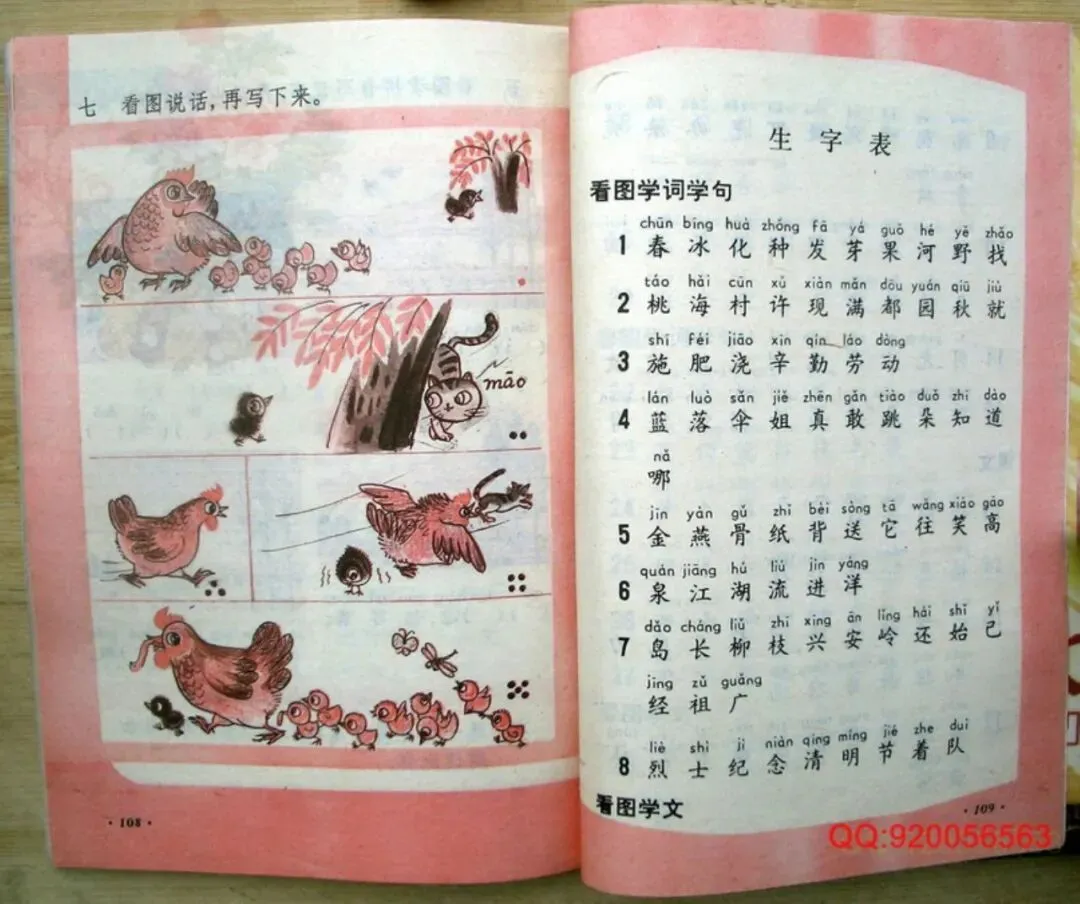 七 看图说话,再写下来。
māo
·108·
生字表
看图学词学句
chūn bīng huà zhǒng fā yá guǒ hé yě zhǎo
1 春 冰 化 种 发 芽 果 河 野 找
táo hǎi cūn xǔ xiàn mǎn dōu yuán qiū jiù
2 桃 海 村 许 现 满 都 园 秋 就
shī féi jiāo xīn qín láo dòng
3 施 肥 浇 辛 勤 劳 动
lán luò sǎn jiě zhēn gǎn tiào duǒ zhī dào
4 蓝 落 伞 姐 真 敢 跳 朵 知 道
nǎ
哪
jīn yàn gǔ zhǐ bèi sòng tā wǎng xiào gāo
5 金 燕 骨 纸 背 送 它 往 笑 高
quán jiāng hú liú jìn yáng
6 泉 江 湖 流 进 洋
dǎo cháng liǔ zhī xīng ān lǐng hái shǐ yǐ
7 岛 长 柳 枝 兴 安 岭 还 始 已
jīng zǔ guǎng
经 祖 广
liè shì jì niàn qīng míng jié zhe duì
8 烈 士 纪 念 清 明 节 着 队
看图学文
·109·
QQ:920056563